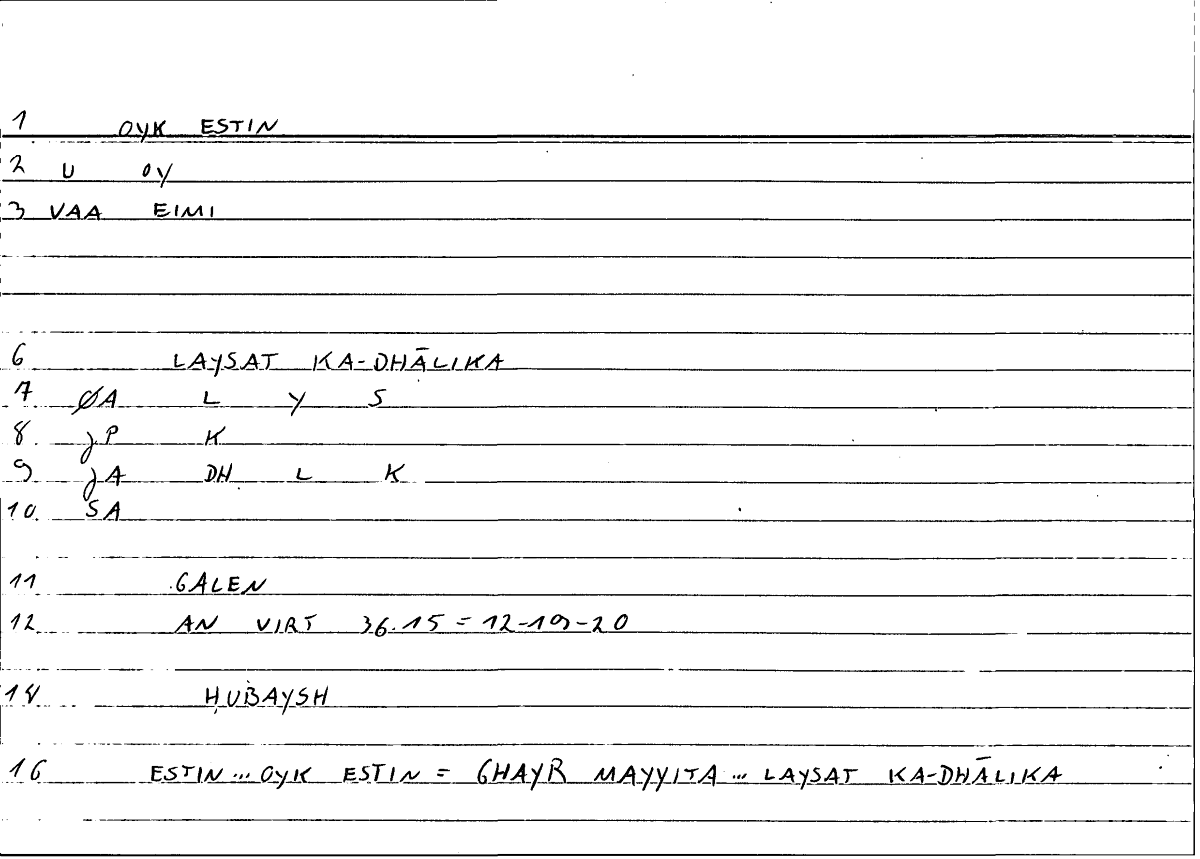 1 OYK ESTIN
2 U OY
3 VAA EIMI
6 LAYSAT KA-DHĀLIKA
7 ØA L Y S
8. JP K
9 JA DH L K
10. SA
11 GALEN
12 AN VIRT 36.15 = 12-19-20
14 ḤUBAYSH
16 ESTIN... OYK ESTIN = GHAYR MAYYITA... LAYSAT KA-DHĀLIKA